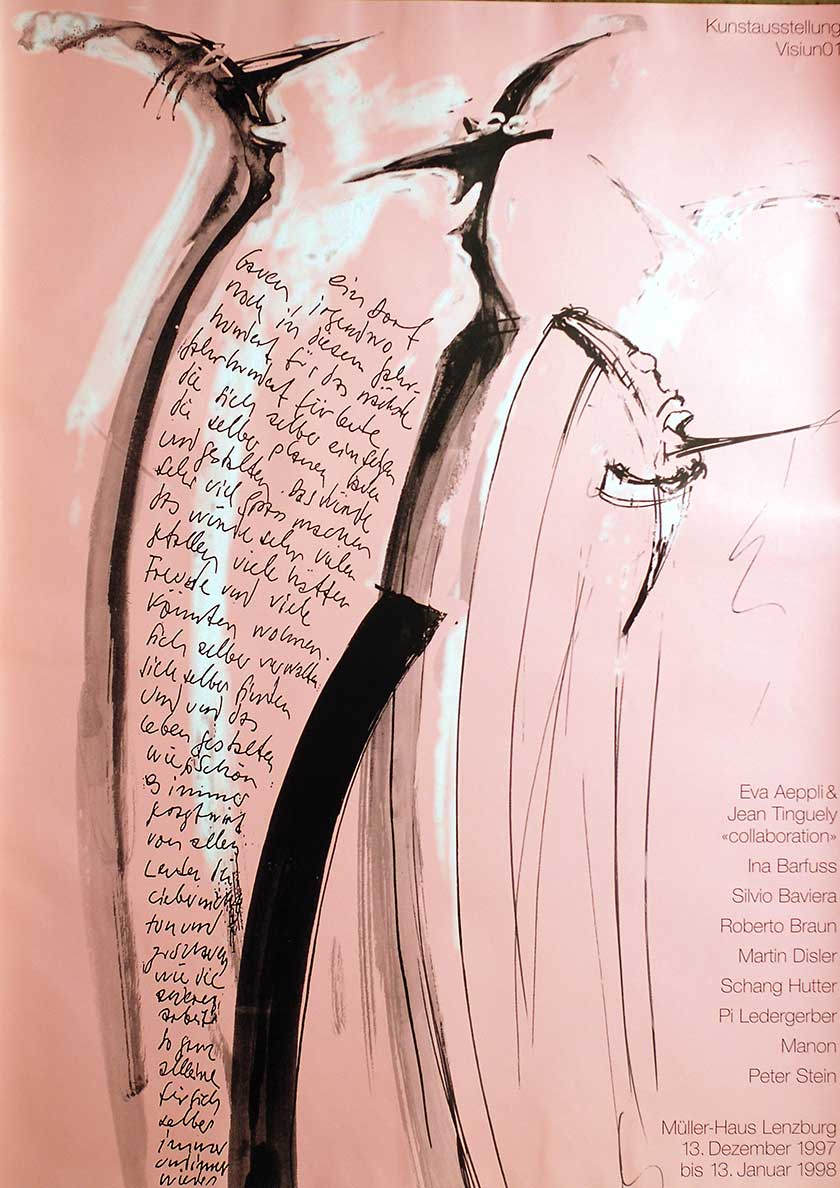 Kunstausstellung
Visiun01
ein Dorf
bauen, irgendwo,
noch in diesem Jahr-
hundert für das nächste
Jahrhundert für Leute
die sich selber einfügen
die selber planen bauen
und gestalten. das würde
sehr viel Spass machen
das würde sehr vielen
gefallen viele hätten
Freude und viele
könnten wohnen.
sich selber verwalten
sich selber finden
und und das
leben gestalten
wie schön
es immer
gesagt wird
von allen
Leuten die
lieber nichts
tun und
wie die
anderen
arbeit
so ganz
alleine
für sich
selber
immer
und immer
wieder
Eva Aeppli &
Jean Tinguely
«collaboration»
Ina Barfuss
Silvio Baviera
Roberto Braun
Martin Disler
Schang Hutter
Pi Ledergerber
Manon
Peter Stein
Müller-Haus Lenzburg
13. Dezember 1997
bis 13. Januar 1998